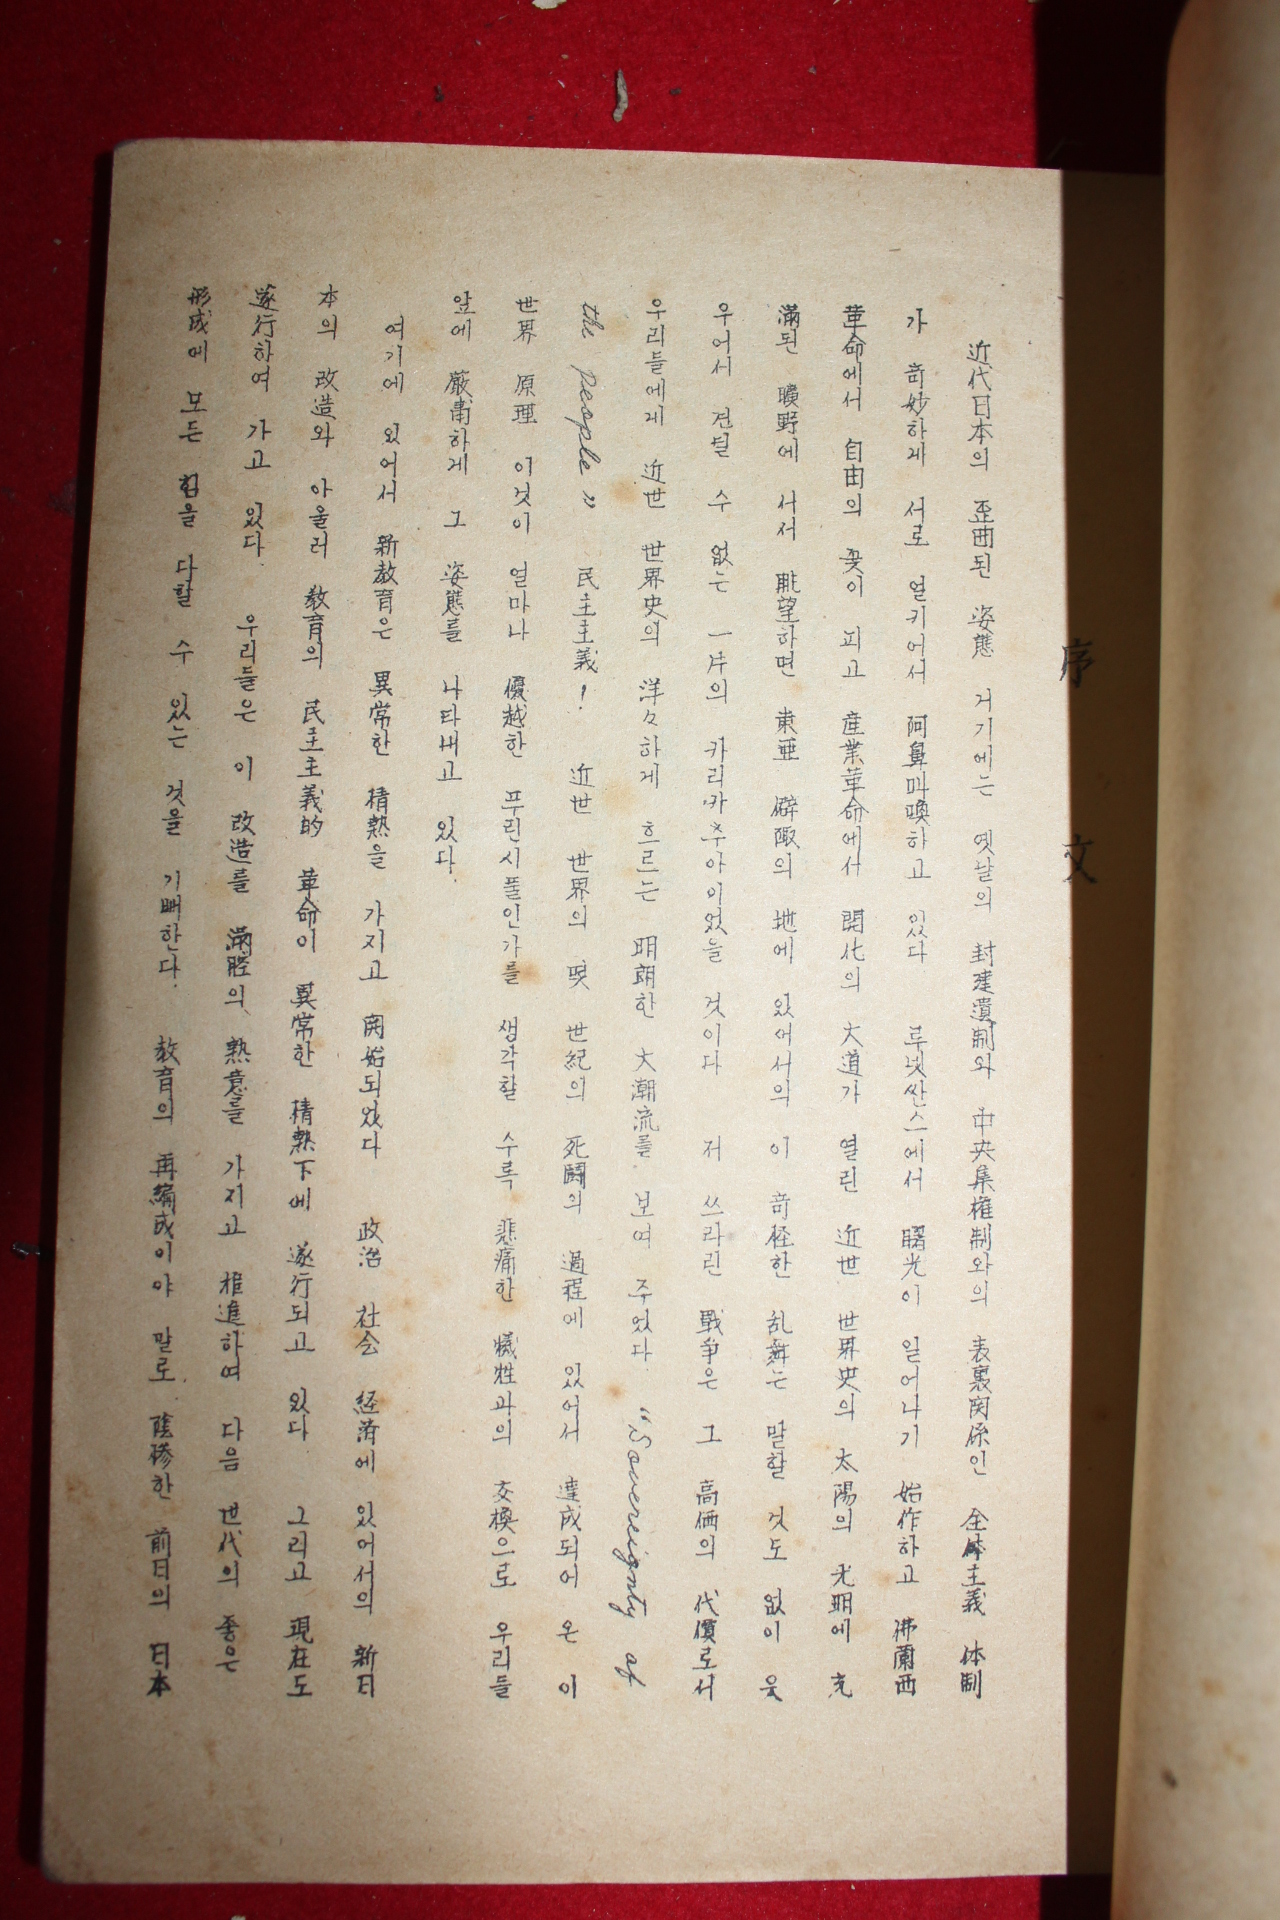 序文
近代日本의 歪曲된 姿態 거기에는 옛날의 封建遺制와 中央集権制와의 表裏関係인 全体主義 体制
가 奇妙하게 서로 얼키어서 阿鼻叫喚하고 있다 루넷싼스에서 曙光이 일어나기 始作하고 佛蘭西
革命에서 自由의 꽃이 피고 産業革命에서 開化의 大道가 열린 近世 世界史의 太陽의 光明에 充
滿된 曠野에 서서 眺望하면 東亜 僻陬의 地에 있어서의 이 奇怪한 乱舞는 말할 것도 없이 웃
우어서 견딜 수 없는 一片의 카리카추아이었을 것이다 저 쓰라린 戦争은 그 高価의 代償로서
우리들에게 近世 世界史의 洋々하게 흐르는 明朗한 大潮流를 보여 주었다. "Sovereignty of
the people" 民主主義! 近世 世界의 몇 世紀의 死闘의 過程에 있어서 達成되어 온 이
世界 原理 이것이 얼마나 優越한 푸린시풀인가를 생각할 수록 悲痛한 犠牲과의 交換으로 우리들
앞에 厳粛하게 그 姿態를 나타내고 있다.
여기에 있어서 新敎育은 異常한 情熱을 가지고 開始되었다 政治 社会 経済에 있어서의 新日
本의 改造와 아울러 敎育의 民主主義的 革命이 異常한 情熱下에 遂行되고 있다 그리고 現在도
遂行하여 가고 있다. 우리들은 이 改造를 滿腔의 熱意를 가지고 推進하여 다음 世代의 좋은
形成에 모든 힘을 다할 수 있는 것을 기뻐한다. 敎育의 再編成이야 말로 陰惨한 前日의 日本